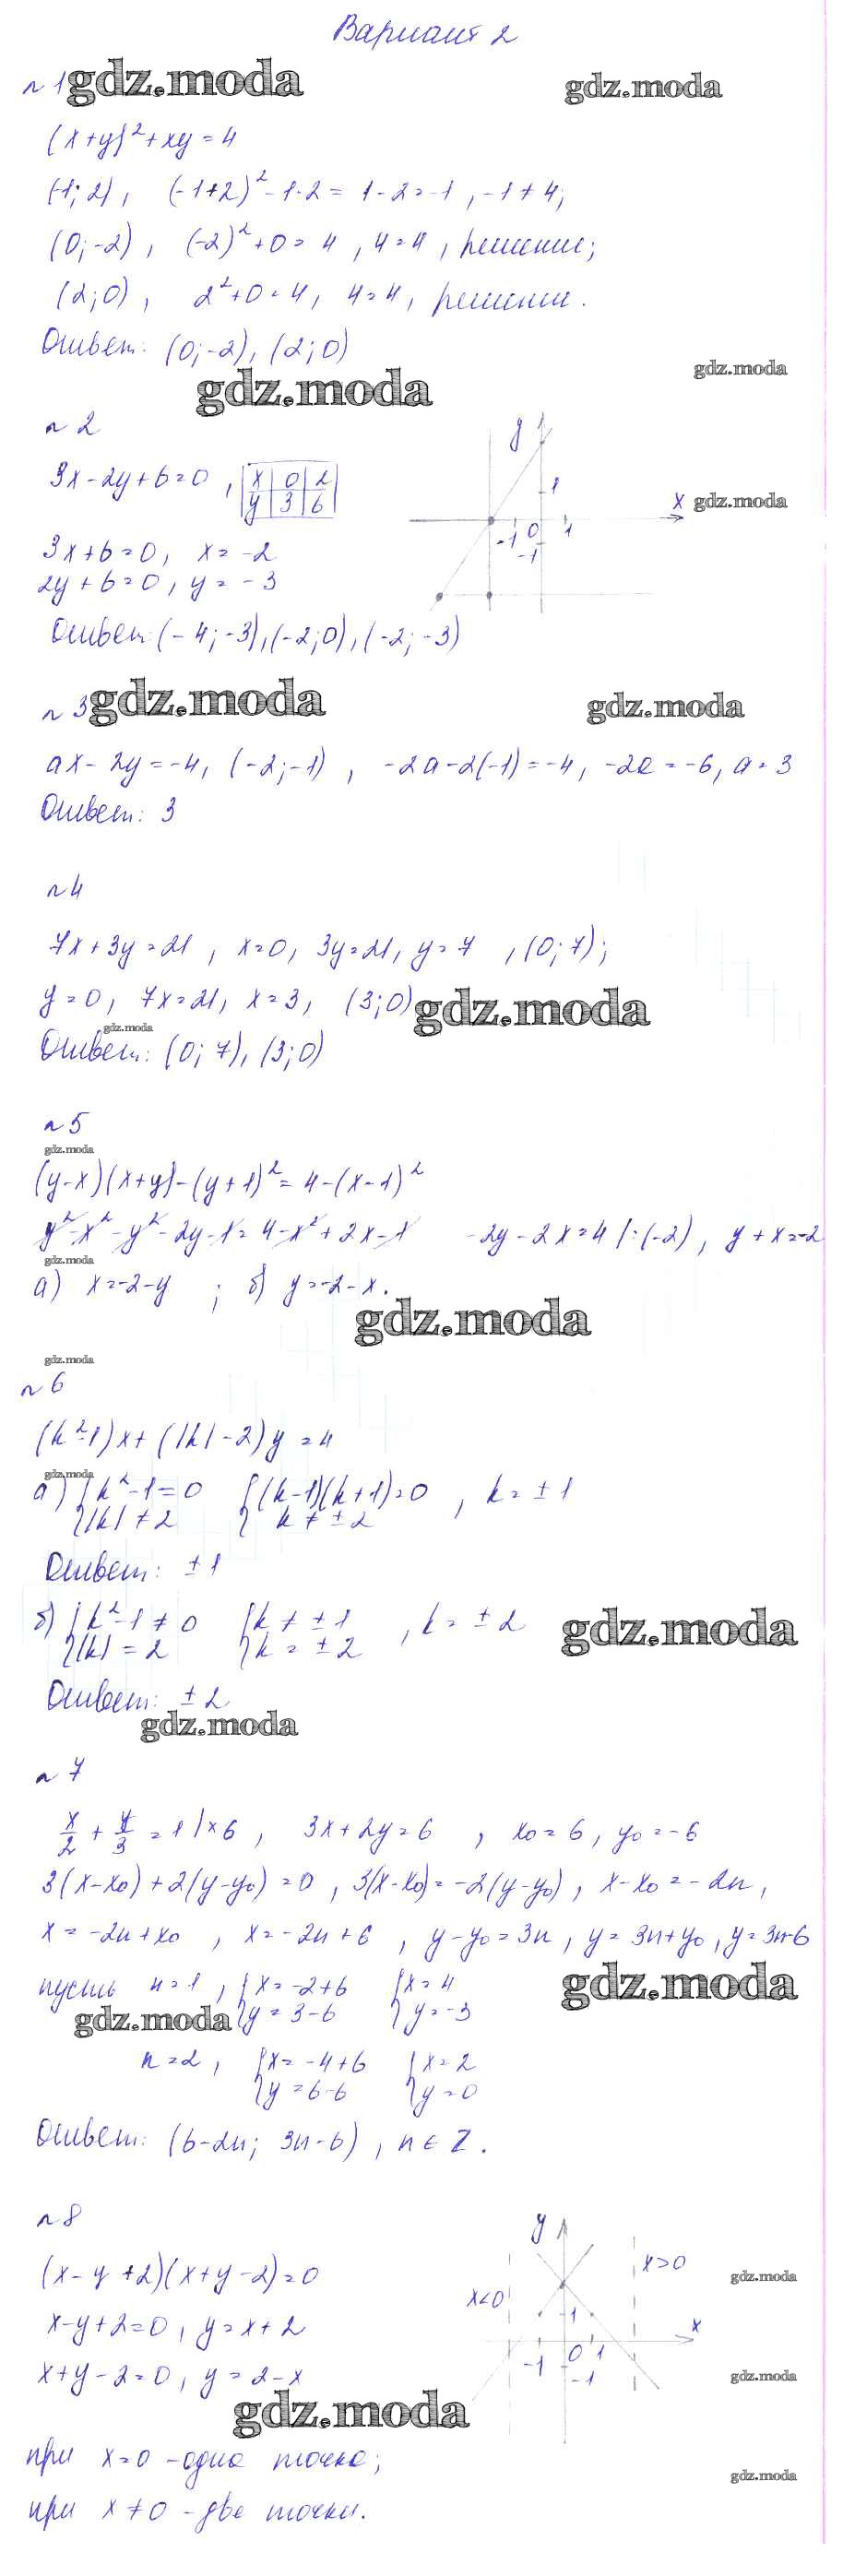 Вариант 2
№ 1 gdz.moda gdz.moda
(x+y)²+xy=4
(-1; 2), (-1+2)²-1·2=1-2=-1, -1≠4;
(0;-2), (-2)²+0=4, 4=4, решение;
(2;0), 2²+0=4, 4=4, решение.
Ответ: (0;-2), (2;0)
gdz.moda
gdz.moda
№ 2
y
3x-2y+6=0,
x 0 2
y 3 6
1
x gdz.moda
-1 0 1
-1
3x+6=0, x=-2
2y+6=0, y=-3
Ответ: (-4;-3), (-2;0), (-2;-3)
№ 3 gdz.moda gdz.moda
ax-2y=-4, (-2;-1), -2a-2(-1)=-4, -2a=-6, a=3
Ответ: 3
№ 4
7x+3y=21, x=0, 3y=21, y=7, (0;7);
y=0, 7x=21, x=3, (3;0) gdz.moda
gdz.moda
Ответ: (0;7), (3;0)
№ 5
gdz.moda
(y-x)(x+y)-(y+1)²=4-(x-1)²
y²-x²-y²-2y-1=4-x²+2x-1 -2y-2x=4 |:(-2), y+x=-2
gdz.moda
а) x=-2-y ; б) y=-2-x.
gdz.moda
gdz.moda
№ 6
(k²-1)x+(|k|-2)y=4
gdz.moda
а) { k²-1=0 { (k-1)(k+1)=0 , k=±1
|k|≠2 k≠±2
Ответ: ±1
б) { k²-1≠0 { k≠±1 , k=±2 gdz.moda
|k|=2 k=±2
Ответ: ±2
gdz.moda
№ 7
x/2 + y/3 = 1 |×6, 3x+2y=6, x₀=6, y₀=-6
3(x-x₀)+2(y-y₀)=0, 3(x-x₀)=-2(y-y₀), x-x₀=-2n,
x=-2n+x₀, x=-2n+6, y-y₀=3n, y=3n+y₀, y=3n-6
пусть n=1, { x=-2+6 { x=4 gdz.moda
gdz.moda y=3-6 y=-3
n=2, { x=-4+6 { x=2
y=6-6 y=0
Ответ: (6-2n; 3n-6), n∈Z.
№ 8
y
(x-y+2)(x+y-2)=0
x>0
gdz.moda
x<0
x-y+2=0, y=x+2
1
x
-1 0 1
-1
x+y-2=0, y=2-x
gdz.moda
gdz.moda
при x=0 - одна точка;
gdz.moda
при x≠0 - две точки.